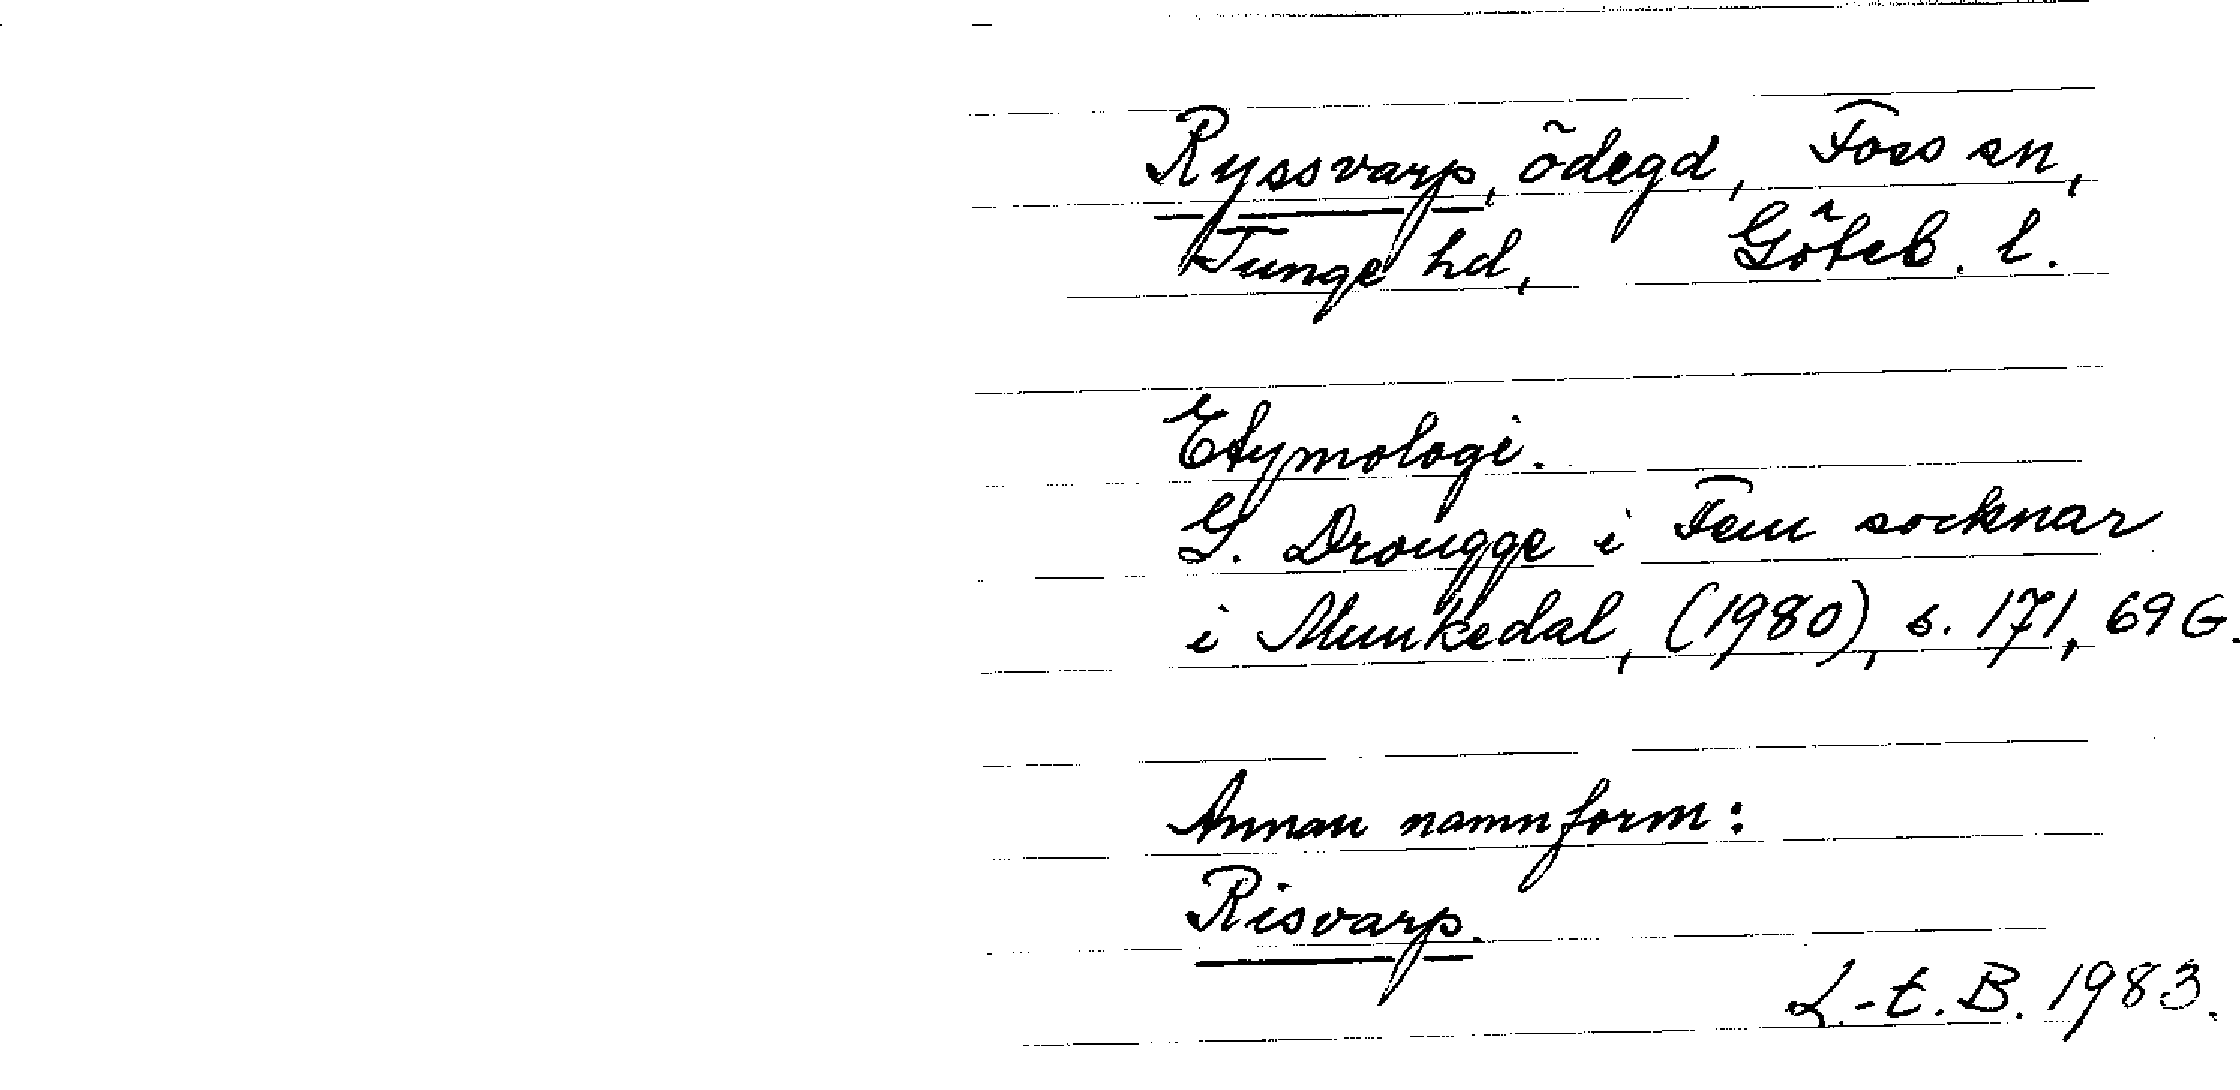 Ryssvarp, ödegd, Foss sn,
Tunge hd, Göteb. l.
Etymologi.
G. Drougge i Fem socknar
i Munkedal, (1980), s. 171, 69 G.
Annan namnform:
Risvarp.
L.-E. B. 1983.